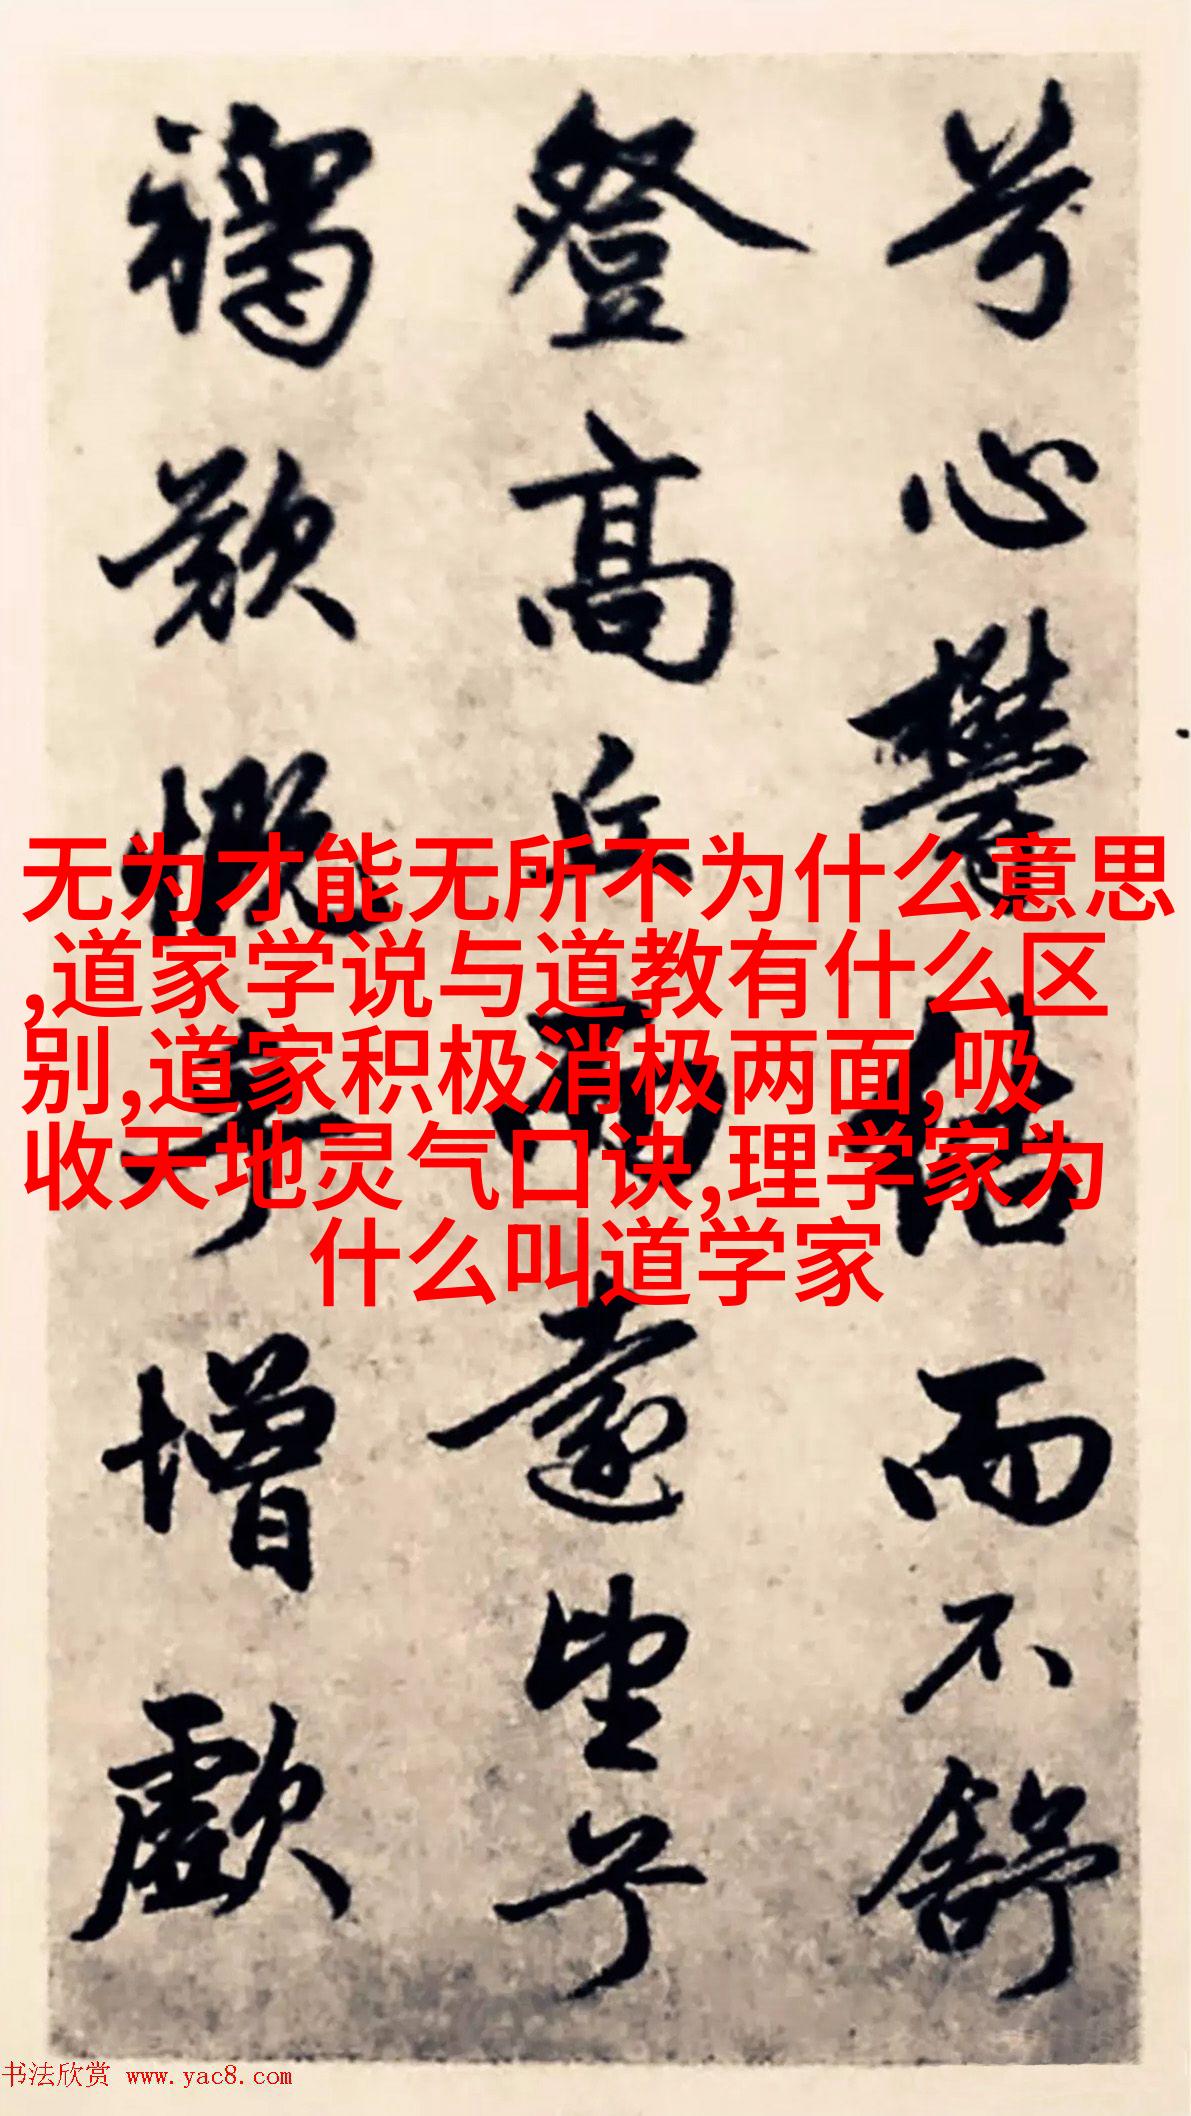 兮心鬱結而不舒
登高丘而遠望兮
欷慨乎增歔
无为才能无所不为什么意思
,道家学说与道教有什么区
别,道家积极消极两面,吸
收天地灵气口诀,理学家为
什么叫道学家
书法欣赏 www.yac8.com